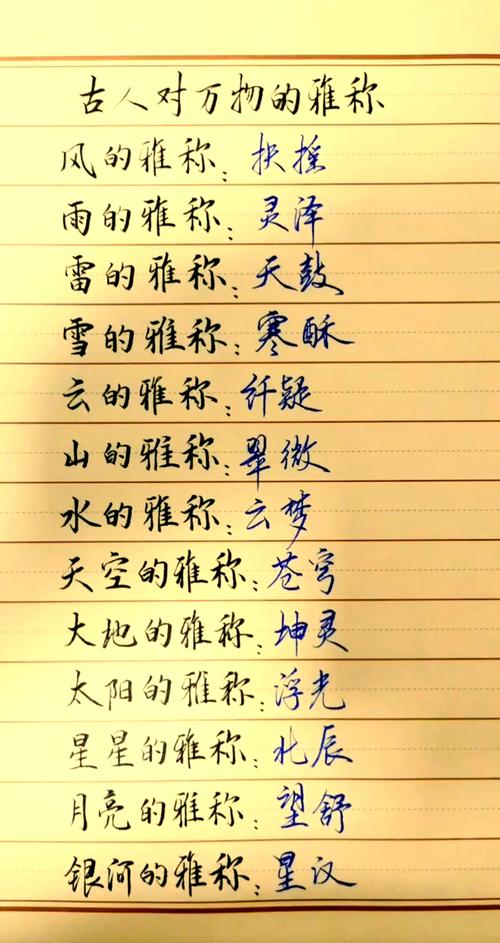 古人对万物的雅称
风的雅称：扶摇
雨的雅称：灵泽
雷的雅称：天鼓
雪的雅称：寒酥
云的雅称：纤凝
山的雅称：翠微
水的雅称：云梦
天空的雅称：苍穹
大地的雅称：坤灵
太阳的雅称：浮光
星星的雅称：北辰
月亮的雅称：望舒
银河的雅称：星汉